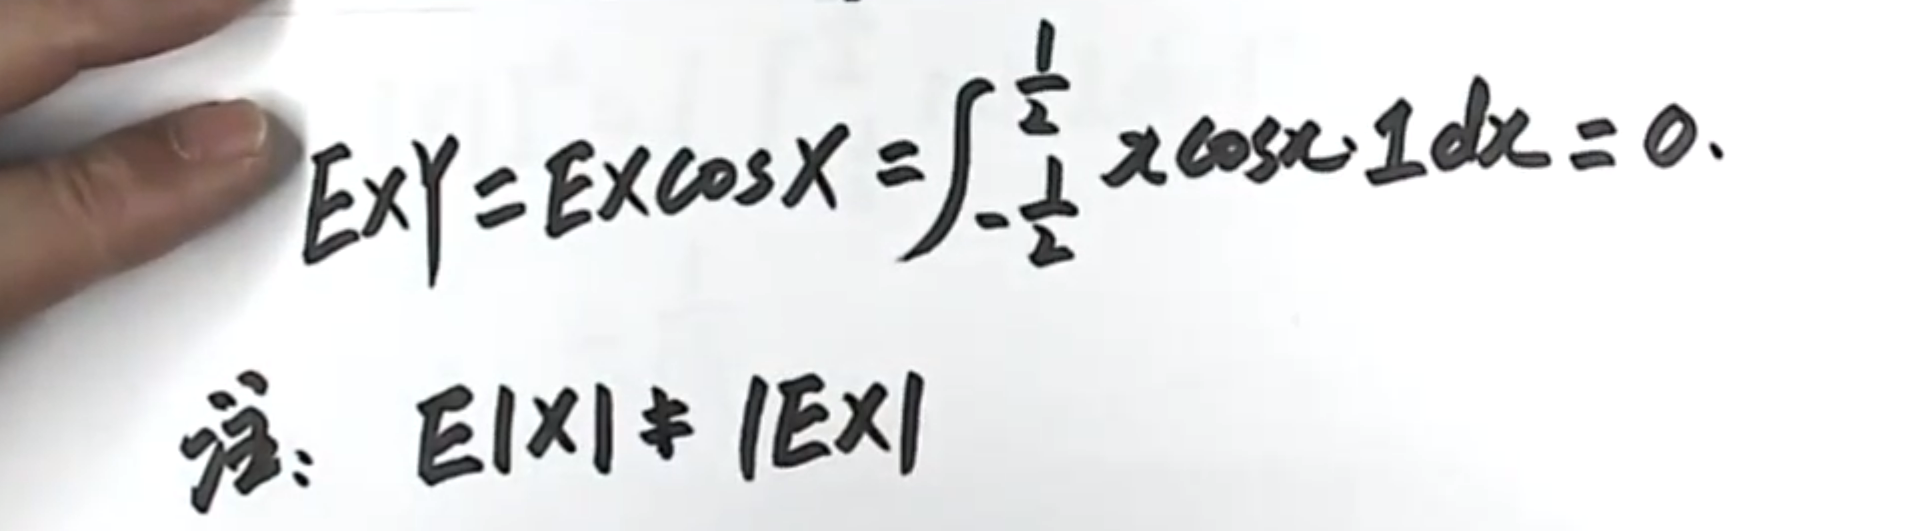 EXY = EXcosX = ∫_{-1/2}^{1/2} x cosx · 1 dx = 0.
注: E|X| ≠ |EX|